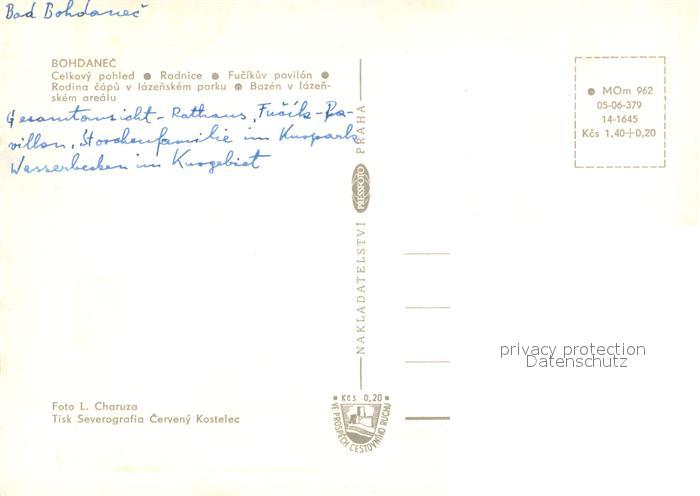 Bad Bohdaneč
BOHDANEČ
Celkový pohled ● Radnice ● Fučíkův pavilón ●
Rodina čápů v lázeňském parku ● Bazén v lázeň-
ském areálu
Gesamtansicht - Rathaus, Fučík-Pa-
villon, Storchenfamilie im Kurpark
Wasserbecken im Kurgebiet
NAKLADATELSTVÍ PRESSFOTO PRAHA
● MOm 962
05-06-379
14-1645
Kčs 1,40+0,20
privacy protection
Datenschutz
Kčs 0,20
VE PROSPĚCH CESTOVNÍHO RUCHU
Foto L. Charuza
Tisk Severografia Červený Kostelec